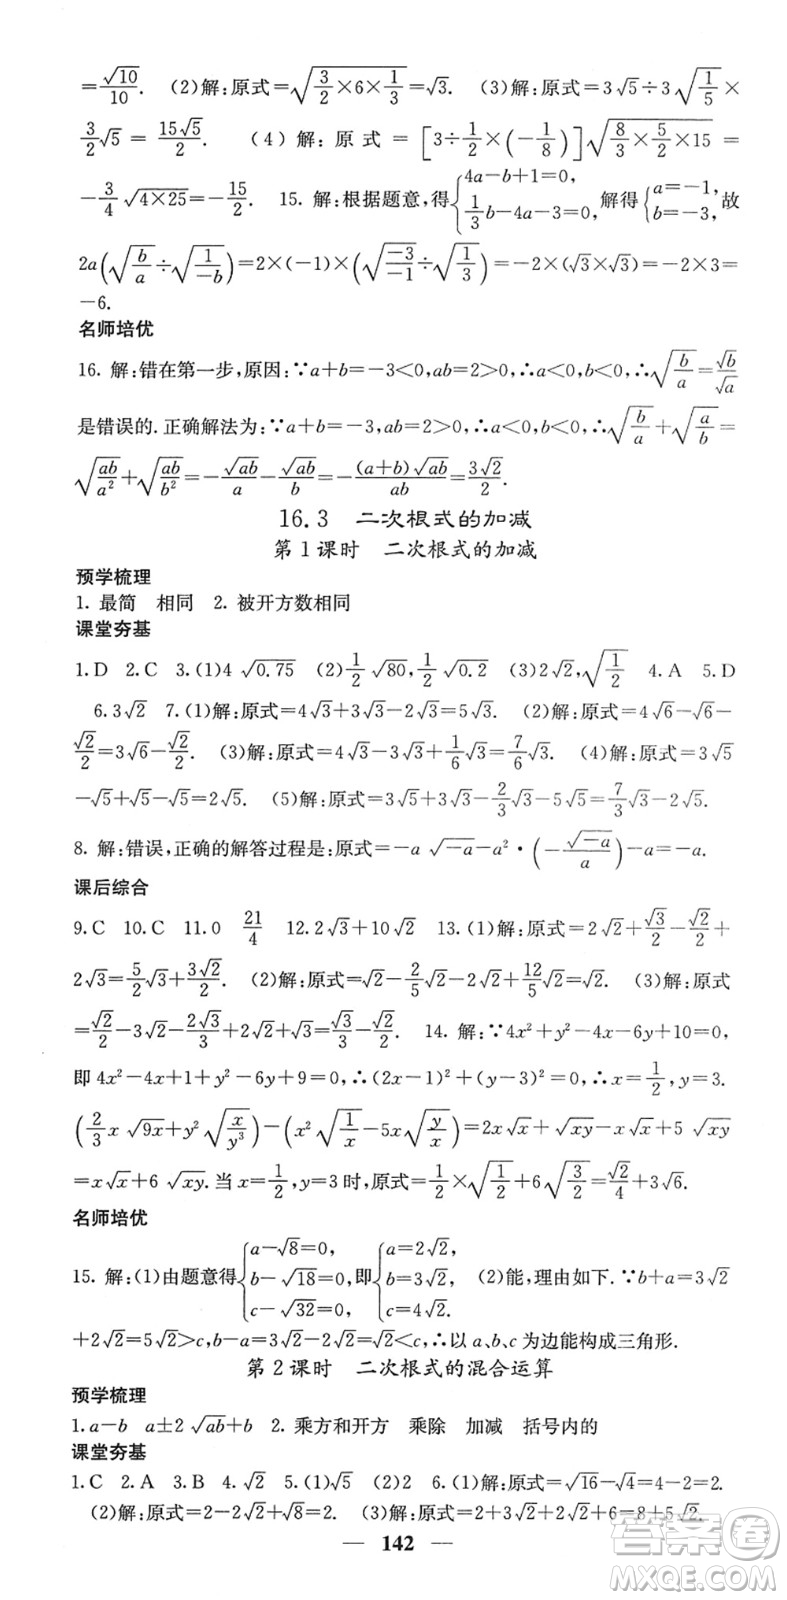 =√10/10. (2)解:原式=√(3/2×6×1/3)=√3. (3)解:原式=3√5÷3√(1/5)×
3/2√5=15√5/2. (4)解:原式=[3÷1/2×(-1/8)]√(8/3×5/2×15)=
-3/4√(4×25)=-15/2. 15. 解:根据题意,得{4a-b+1=0, 1/3b-4a-3=0, 解得{a=-1, b=-3, 故
2a(√(b/a)÷√(1/-b))=2×(-1)×(√(-3/-1)÷√(1/3))=-2×(√3×√3)=-2×3=
-6.
名师培优
16. 解:错在第一步,原因:∵a+b=-3<0,ab=2>0,∴a<0,b<0,∴√(b/a)=√b/√a
是错误的.正确解法为:∵a+b=-3,ab=2>0,∴a<0,b<0,∴√(b/a)+√(a/b)=
√(ab/a²)+√(ab/b²)=-√ab/a-√ab/b=-(a+b)√ab/ab=3√2/2.
16.3 二次根式的加减
第1课时 二次根式的加减
预学梳理
1. 最简 相同 2. 被开方数相同
课堂夯基
1.D 2.C 3.(1)4 √0.75 (2)1/2√80,1/2√0.2 (3)2√2,√(1/2) 4.A 5.D
6.3√2 7.(1)解:原式=4√3+3√3-2√3=5√3. (2)解:原式=4√6-√6-
√2/2=3√6-√2/2. (3)解:原式=4√3-3√3+1/6√3=7/6√3. (4)解:原式=3√5
-√5+√5-√5=2√5. (5)解:原式=3√5+3√3-2/3√3-5√5=7/3√3-2√5.
8. 解:错误,正确的解答过程是:原式=-a√-a-a²·(-√-a/a)-a=-a.
课后综合
9.C 10.C 11.0 21/4 12.2√3+10√2 13.(1)解:原式=2√2+√3/2-√2/2+
2√3=5/2√3+3√2/2. (2)解:原式=√2-2/5√2-2√2+12/5√2=√2. (3)解:原式
=√2/2-3√2-2√3/3+2√2+√3=√3/3-√2/2. 14. 解:∵4x²+y²-4x-6y+10=0,
即4x²-4x+1+y²-6y+9=0,∴(2x-1)²+(y-3)²=0,∴x=1/2,y=3.
(2/3x√9x+y²√(x/y³))-(x²√(1/x)-5x√(y/x))=2x√x+√xy-x√x+5√xy
=x√x+6√xy.当x=1/2,y=3时,原式=1/2×√(1/2)+6√(3/2)=√2/4+3√6.
名师培优
15. 解:(1)由题意得{a-√8=0, b-√18=0, c-√32=0, 即{a=2√2, b=3√2, c=4√2. (2)能,理由如下.∵b+a=3√2
+2√2=5√2>c,b-a=3√2-2√2=√2<c,∴以a、b、c为边能构成三角形.
第2课时 二次根式的混合运算
预学梳理
1.a-b a±2√ab+b 2. 乘方和开方 乘除 加减 括号内的
课堂夯基
1.C 2.A 3.B 4.√2 5.(1)√5 (2)2 6.(1)解:原式=√16-√4=4-2=2.
(2)解:原式=2-2√2+√8=2. (3)解:原式=2+3√2+2√2+6=8+5√2.
— 142 —
答案卷
MXQE.COM